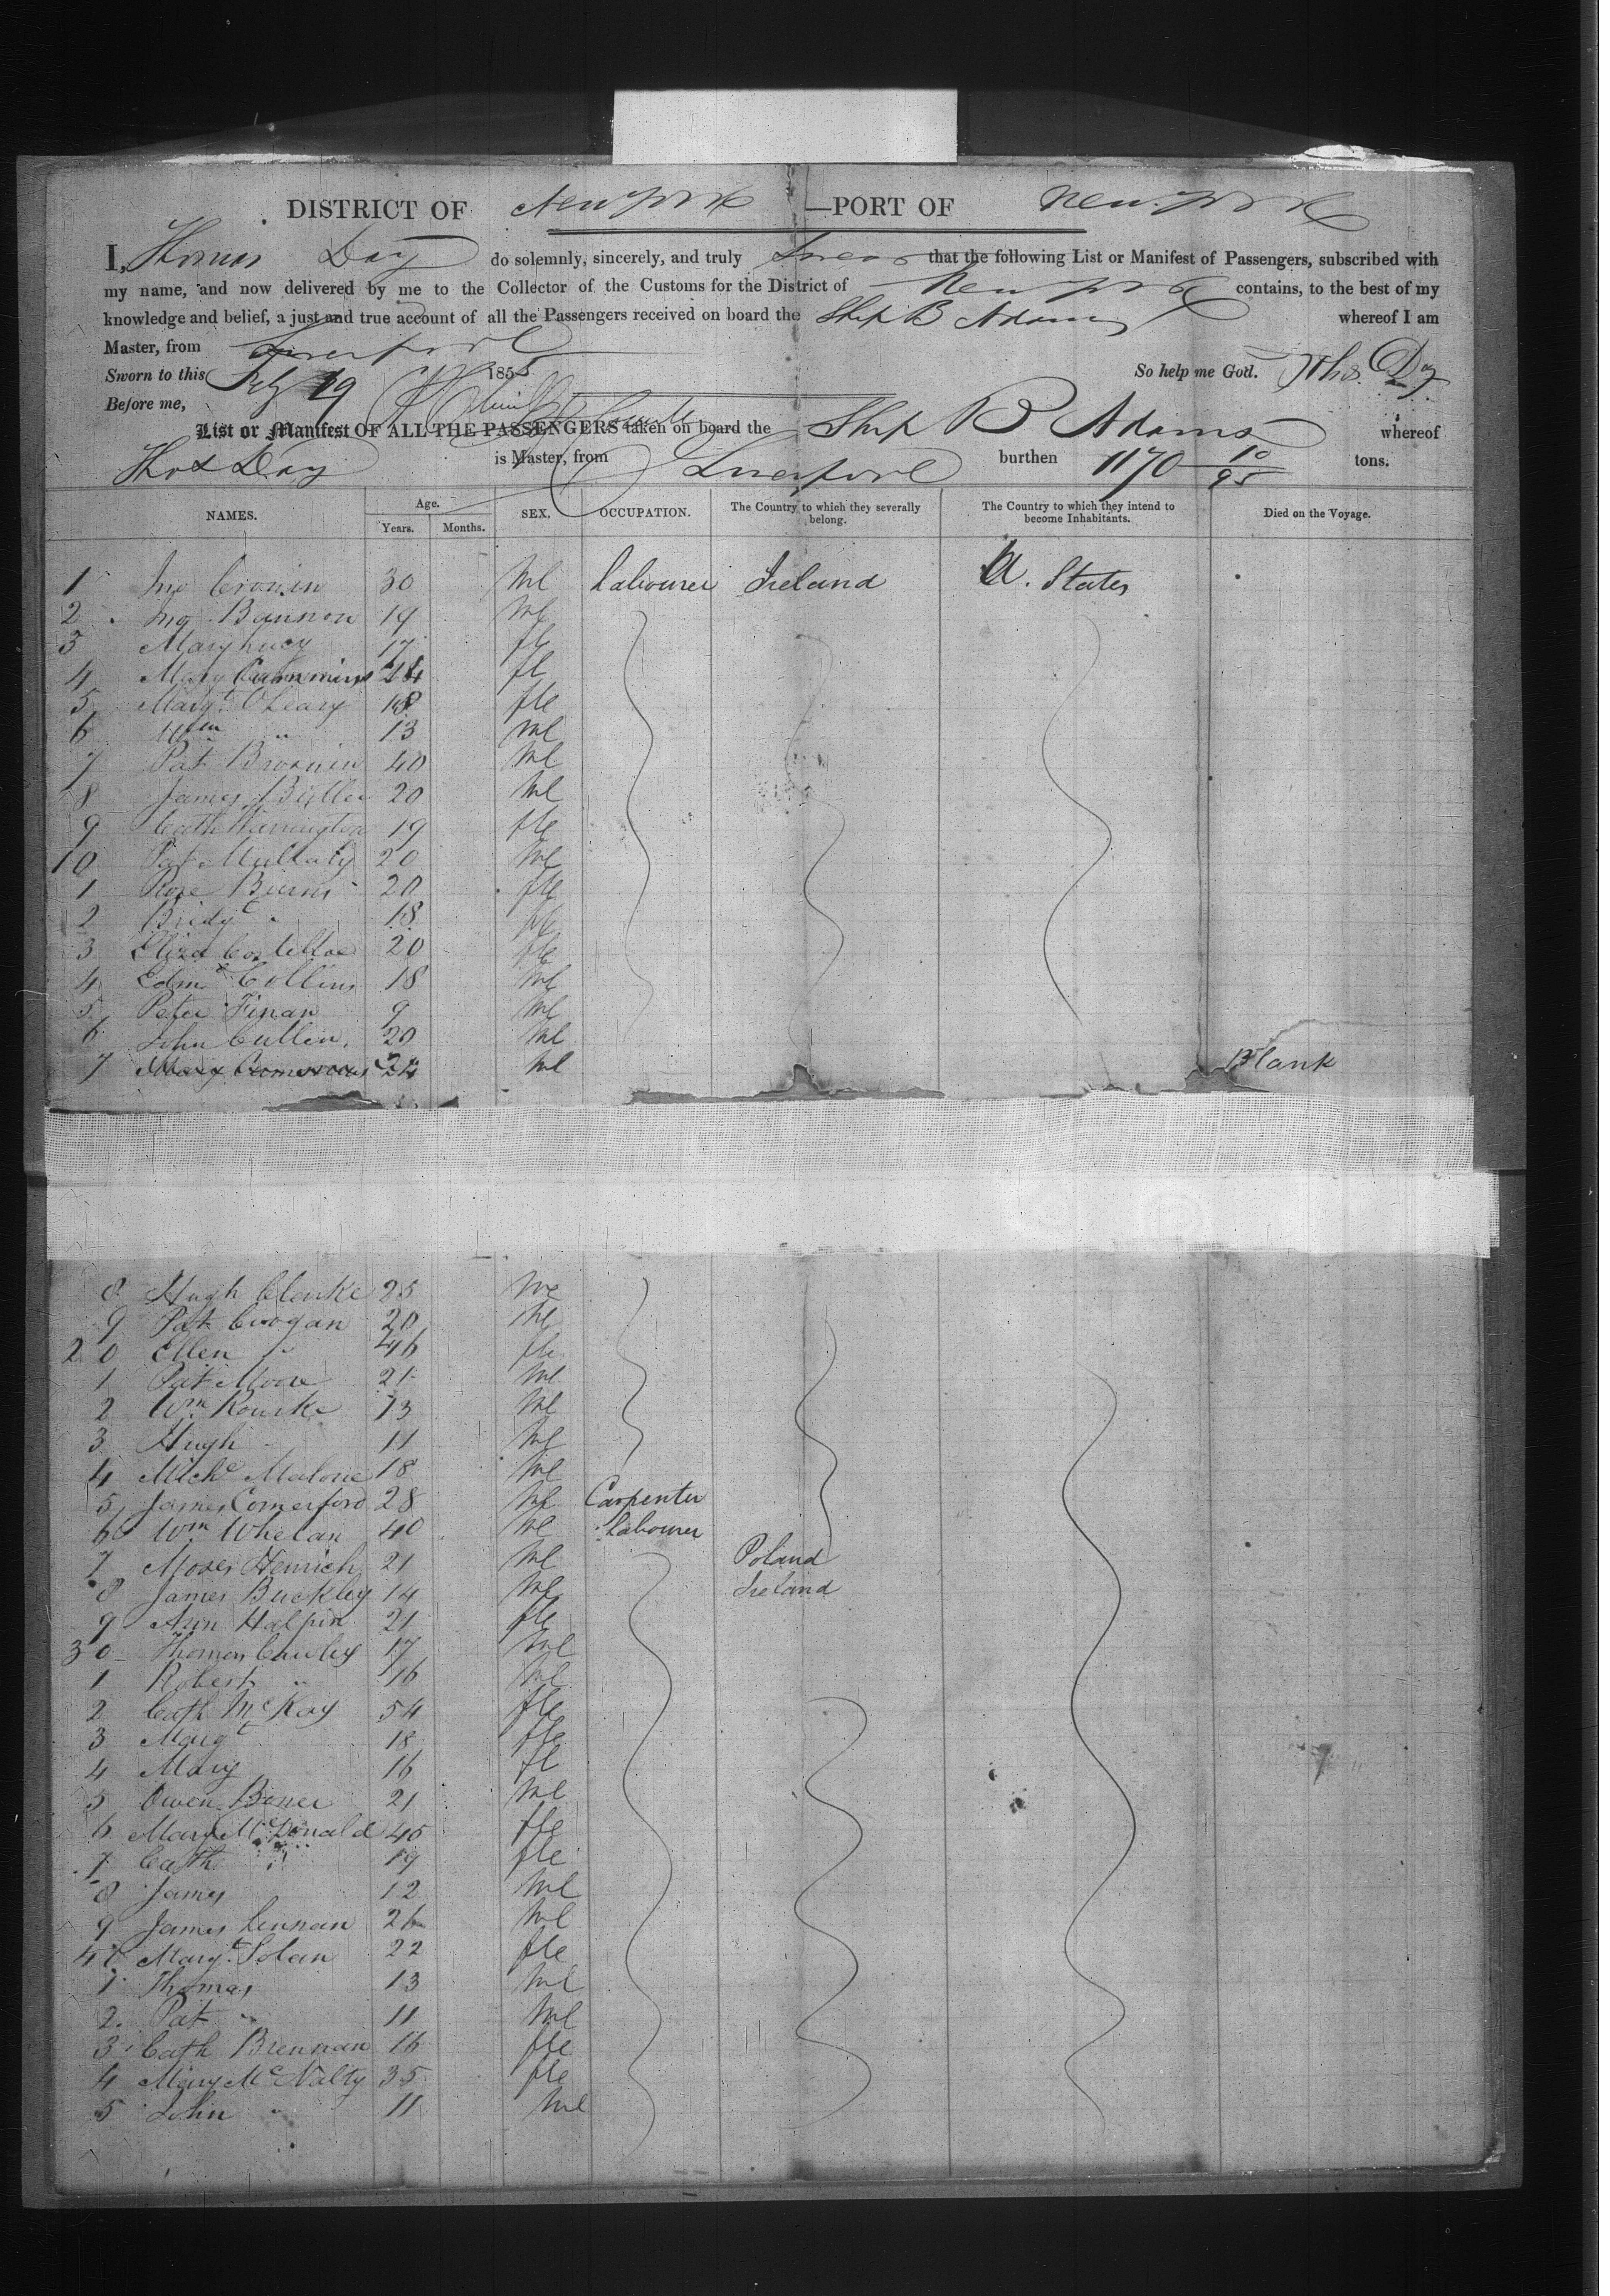 DISTRICT OF New York —PORT OF New York
I, Thomas Day do solemnly, sincerely, and truly Swear that the following List or Manifest of Passengers, subscribed with
my name, and now delivered by me to the Collector of the Customs for the District of New York contains, to the best of my
knowledge and belief, a just and true account of all the Passengers received on board the Ship B Adams whereof I am
Master, from Liverpool
Sworn to this Feby 19 1855 So help me God. Thos. Day
Before me,
List or Manifest OF ALL THE PASSENGERS taken on board the Ship B Adams whereof
Thos Day is Master, from Liverpool burthen 1170 10/95 tons.
NAMES. Age. Years. Months. SEX. OCCUPATION. The Country to which they severally belong. The Country to which they intend to become Inhabitants. Died on the Voyage.
1 Jno Cronin 30 Ml Labourer Ireland U. States
2 Jno Bannon 19 Ml
3 Mary Lucy 17 fle
4 Mary Cummins 24 fl
5 Margt O'Leary 18 fle
6 Wm " 13 Ml
7 Pat Brosnin 40 Ml
8 James Butler 20 Ml
9 Cath Harrington 19 fle
10 Pat Mullaly 20 Ml
1 Rose Burns 20 fle
2 Bridgt " 18 fle
3 Eliza Costelloe 20 fle
4 Edmd Collins 18 Ml
5 Peter Finan 9 Ml
6 John Cullen 20 Ml
7 Mary 24 Ml Blank
8 Hugh Clarke 25 Ml
9 Pat Croogan 20 Ml
20 Ellen " 46 fle
1 Pat Moore 21 Ml
2 Wm Rourke 13 Ml
3 Hugh " 11 Ml
4 Michl Malone 18 Ml
5 James Comerford 28 Ml Carpenter
6 Wm Whelan 40 Ml Labourer
7 Moses Henrich 21 Ml Poland
8 James Buckley 14 Ml Ireland
9 Ann Halpin 21 fle
30 Thomas Cawley 17 Ml
1 Robert " 16 Ml
2 Cath McKay 54 fle
3 Margt 18 fle
4 Mary 16 fl
5 Owen 21 Ml
6 Mary McDonald 45 fle
7 Cath " 19 fle
8 James 12 Ml
9 James Lennan 26 Ml
40 Margt Solan 22 fle
1 Thomas 13 Ml
2 Pat " 11 Ml
3 Cath Brennan 16 fle
4 Mary McNalty 35 fle
5 John " 11 Ml